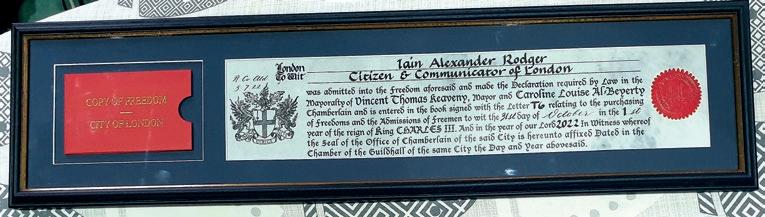 COPY OF FREEDOM
CITY OF LONDON
London
To Wit
Iain Alexander Rodger
Citizen & Communicator of London
was admitted into the Freedom aforesaid and made the Declaration required by Law in the
Mayoralty of Vincent Thomas Keaveny, Mayor and Caroline Louise Al-Beyerty
Chamberlain and is entered in the book signed with the Letter T6 relating to the purchasing
of Freedoms and the Admissions of Freemen to wit the 31st day of October in the 1st
year of the reign of King CHARLES III. And in the year of our Lord 2022 In Witness whereof
the Seal of the Office of Chamberlain of the said City is hereunto affixed Dated in the
Chamber of the Guildhall of the same City the Day and Year abovesaid.